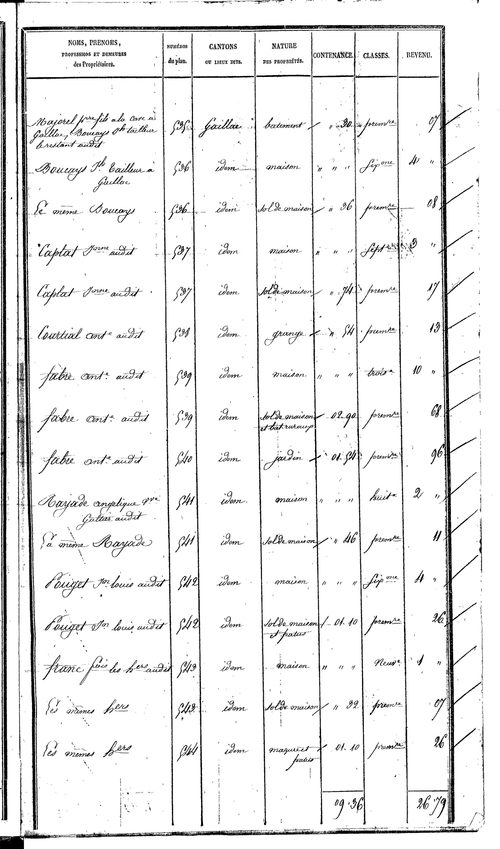 NOMS, PRENOMS, PROFESSIONS ET DEMEURES des Propriétaires. NUMÉROS du plan. CANTONS OU LIEUX DITS. NATURE DES PROPRIÉTÉS. CONTENANCE. CLASSES. REVENU.
fils a la Cave a
Gaillac, Boucays Jph tailleur
le restant audit 535 Gaillac batement " 30 premre 07
Boucays Jph tailleur a 536 idem maison " " " Sixme 4 "
Gaillac
Le même Boucays 536 idem sol de maison " 36 premre 08
Captat audit 537 idem maison " " " Sept 3 "
Captat audit 537 idem sol de maison " 74 premre 17
Courtial ante audit 538 idem grange " 54 premre 13
fabre ant. audit 539 idem maison " " " troise 10 "
fabre ante audit 539 idem sol de maison 02.90 premre 68
fabre ante audit 540 idem jardin 01.54 premre 96
Rayade angelique vve 541 idem maison " " " huite 2 "
audit
La même Rayade 541 idem sol de maison " 46 premre 11
Pouget Jn louis audit 542 idem maison " " " Sixme 4 "
Pouget Jn louis audit 542 idem sol de maison 01.10 premre 26
et patus
franc les hers audit 543 idem maison " " " Neuve 1 "
Les mêmes hers 543 idem sol de maison " 32 premre 07
Les mêmes hers 544 idem mazure et 01.10 premre 26
patus
09.36 26.79